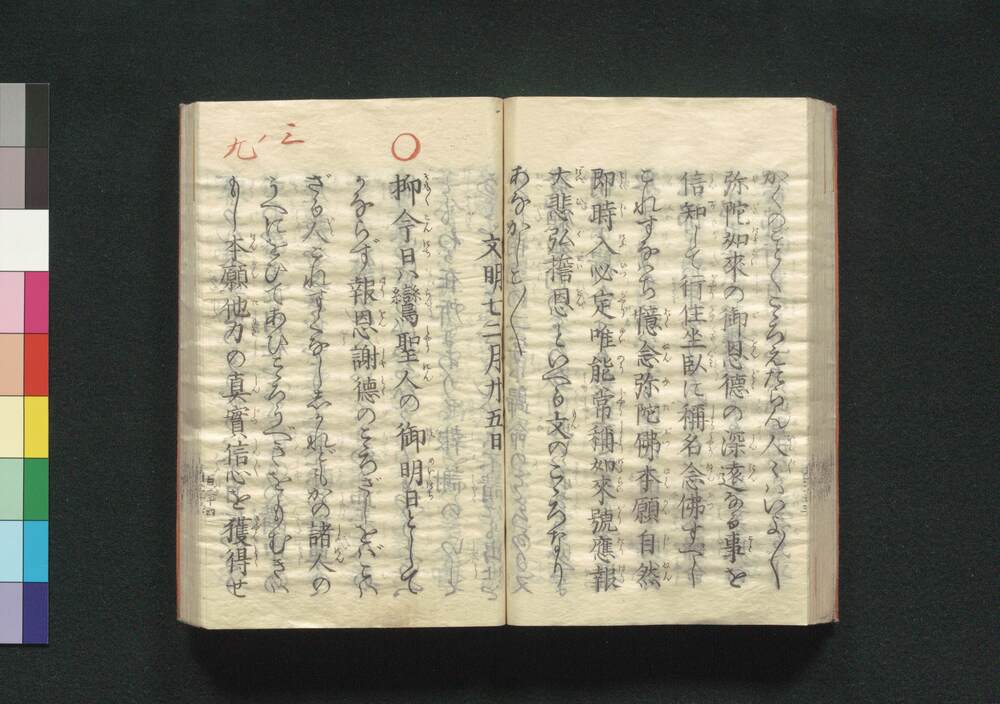 かくのことくこゝろえたらん人〻はいよ〳〵
弥陀如來の御恩德の深遠なる事を
信知して行住坐臥に稱名念佛すへし
これすなはち憶念弥陀佛本願自然
即時入必定唯能常稱如來號應報
大悲弘誓恩といへる文のこゝろなり
あなかしこ〳〵
文明七二月廿五日
三ノ九
〇
抑今日ハ鸞聖人の御明日として
かならず報恩謝德のこゝろざしをはこハ
ざる人これすくなししかれともかの諸人の
うへにをひてあひこゝろうへきをもむきハ
もし本願他力の真實信心を獲得せ